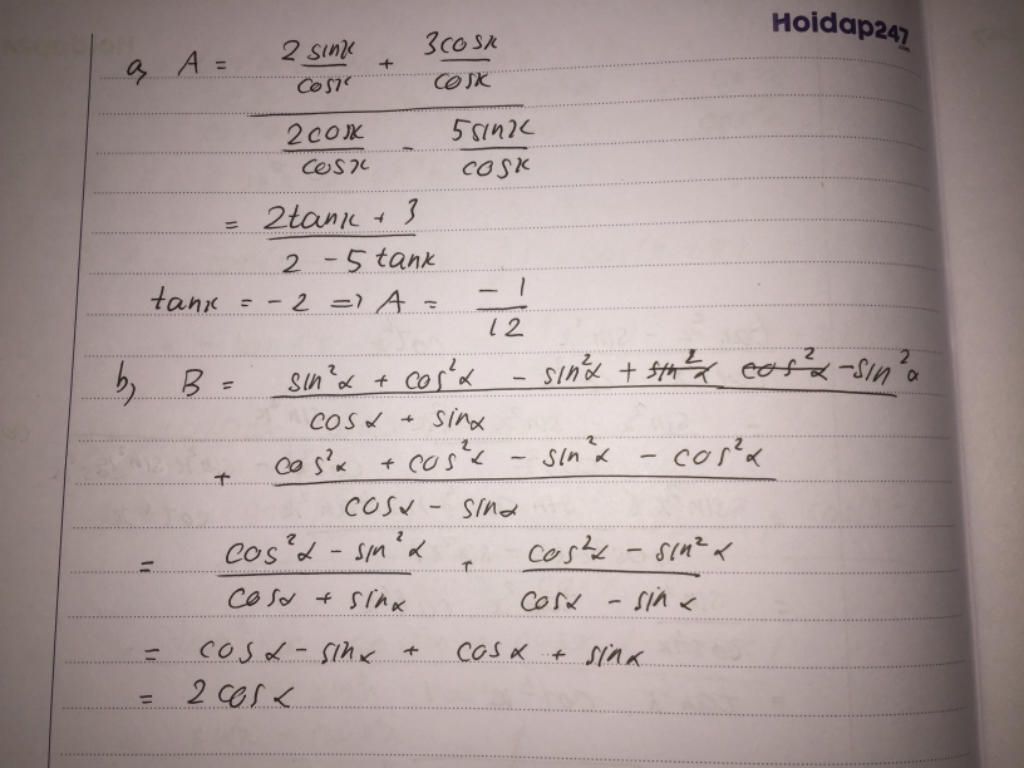 Hoidap247
.com
a, A = 2 sinx + 3cosx
cosx cosx
2cosx - 5sinx
cosx cosx
= 2tanx + 3
2 - 5 tanx
tanx = - 2 => A = - 1
12
b, B = sin²α + cos²α - sin²α + sin²α cos²α - sin²α
cosα + sinα
+ cos²α + cos²α - sin²α - cos²α
cosα - sinα
= cos²α - sin²α + cos²α - sin²α
cosα + sinα cosα - sinα
= cosα - sinα + cosα + sinα
= 2 cosα